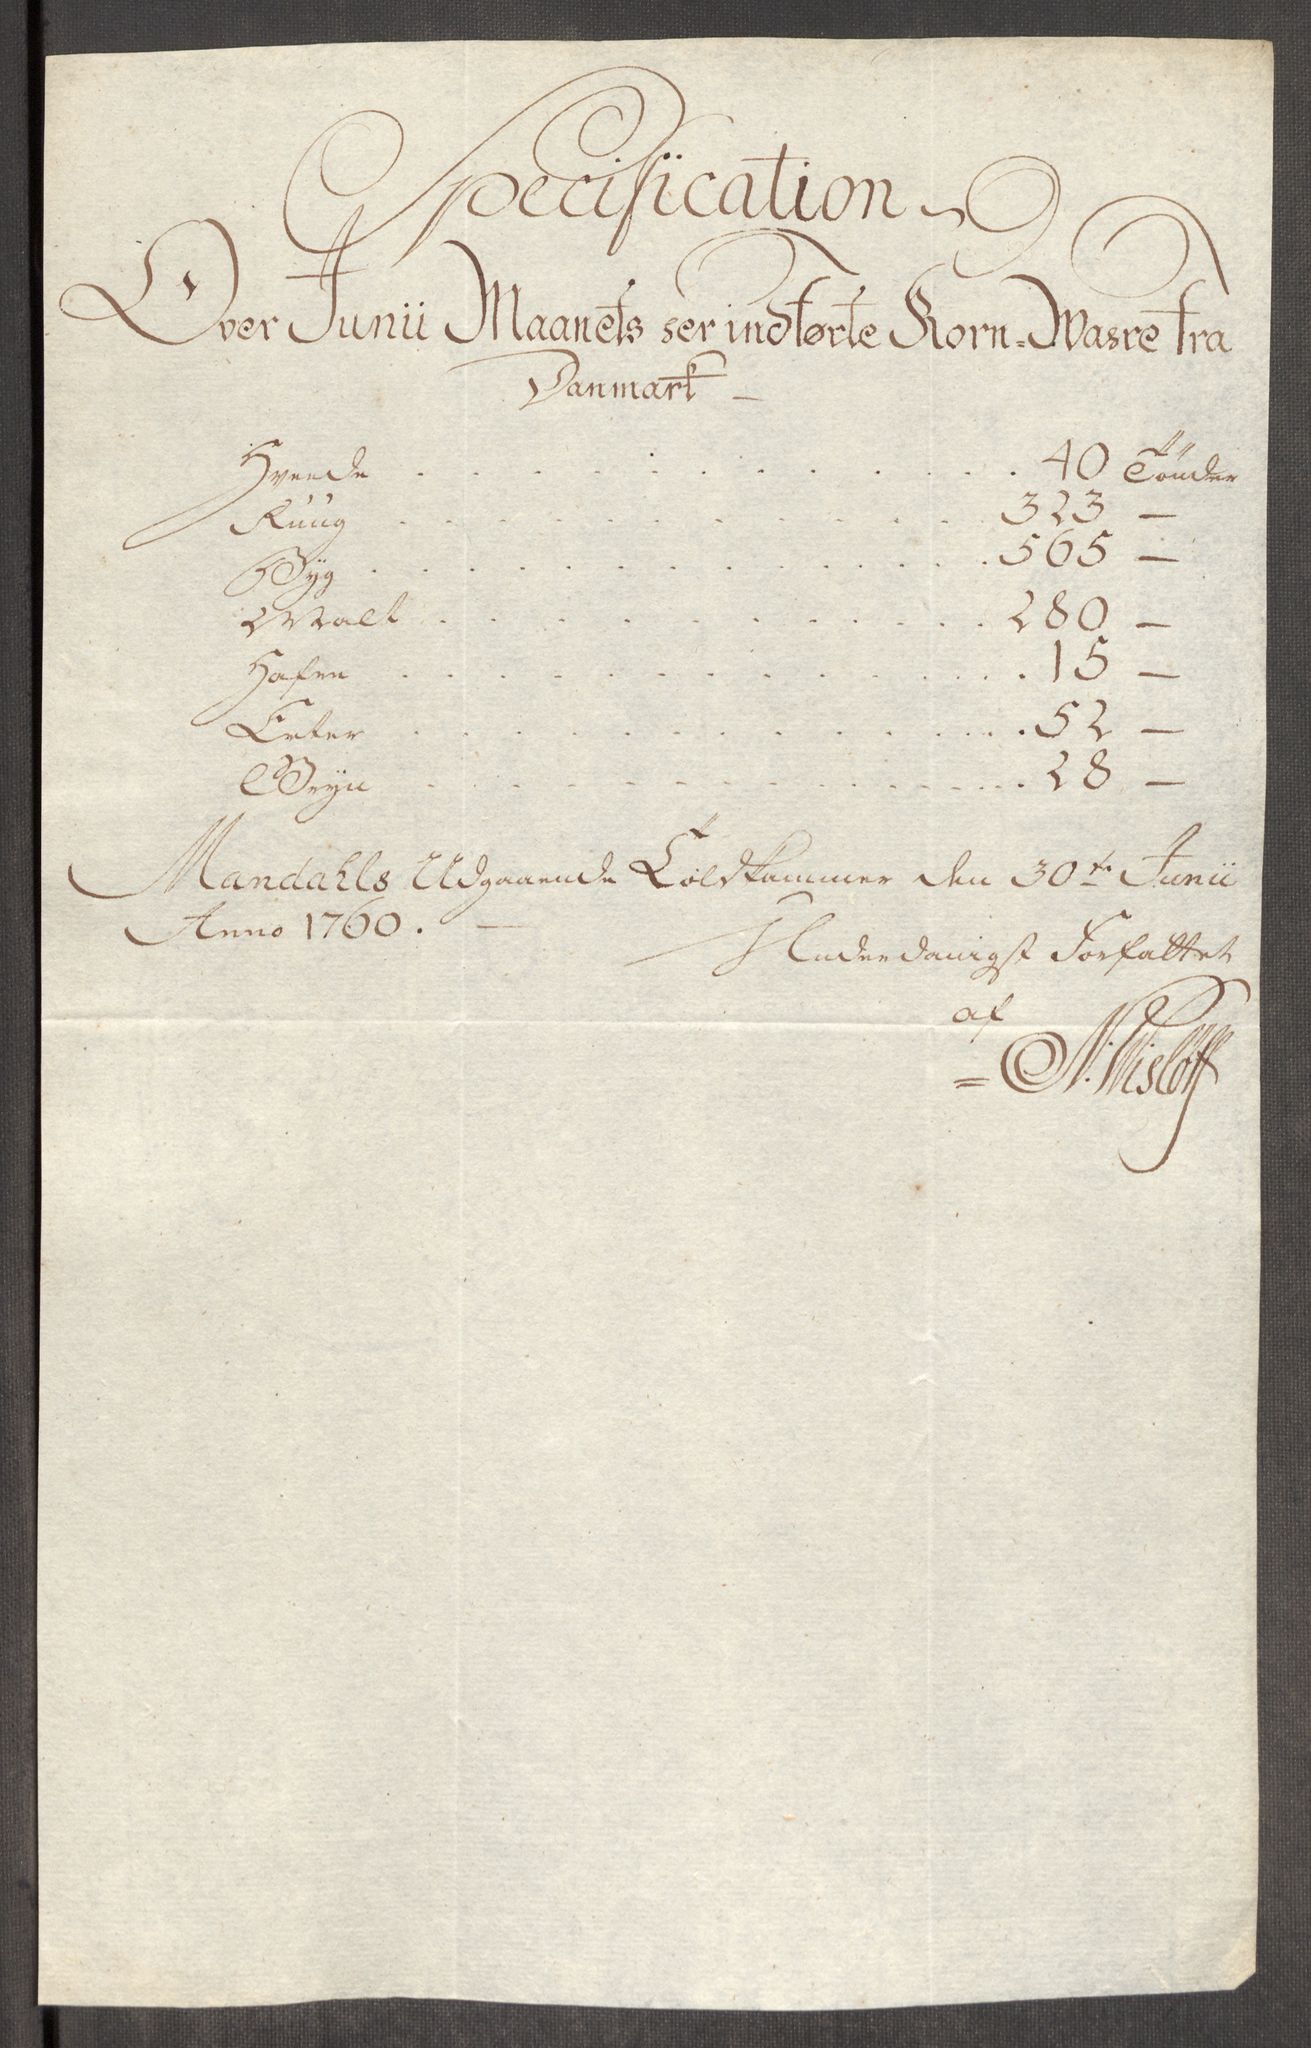 Specification
Over Junii Maanets her indførte Korn-Wahre fra
Danmark —
Hveede . . . . . . . . . . . 40 Tönder
Rüüg . . . . . . . . . . . 323 —
Byg . . . . . . . . . . . 565 —
Malt . . . . . . . . . . . 280 —
Hafre . . . . . . . . . . . 15 —
Erter . . . . . . . . . . . 52 —
Gryn . . . . . . . . . . . 28 —
Mandahls Udgaaende Toldkammer den 30te Junii
Anno 1760. —
Underdanigst Forfattet
af
= N: Wisløff